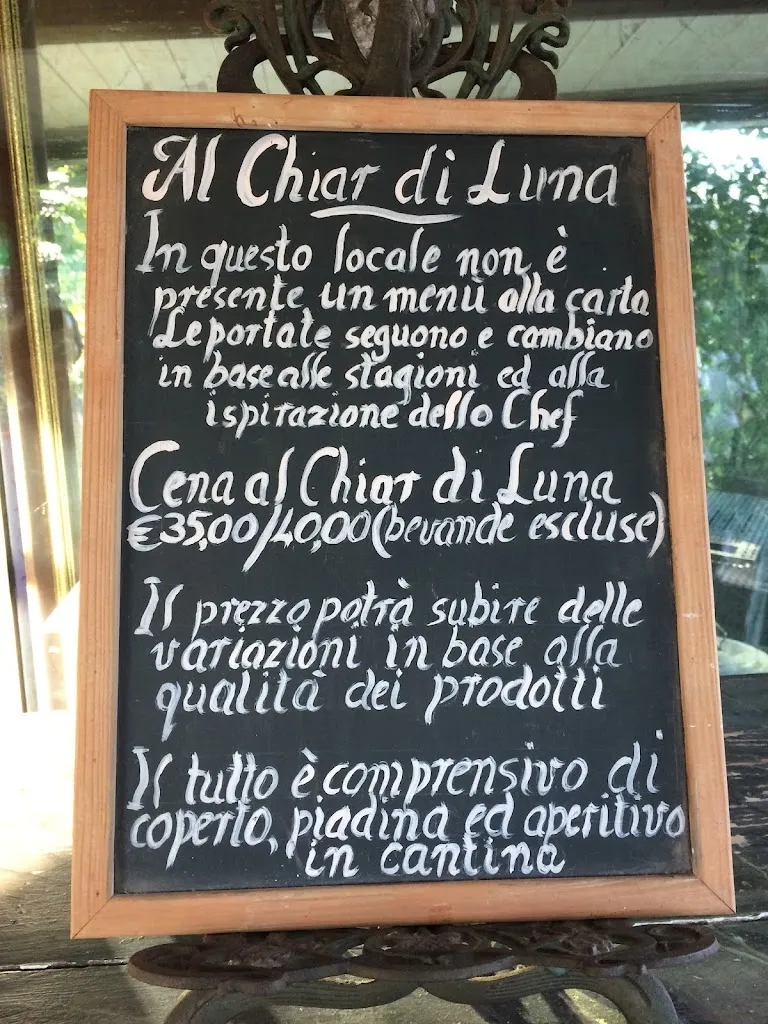 Al Chiar di Luna
In questo locale non è
presente un menù alla carta
Le portate seguono e cambiano
in base alle stagioni ed alla
ispirazione dello Chef
Cena al Chiar di Luna
€35,00/40,00(bevande escluse)
Il prezzo potrà subire delle
variazioni in base alla
qualità dei prodotti
Il tutto è comprensivo di
coperto, piadina ed aperitivo
in cantina